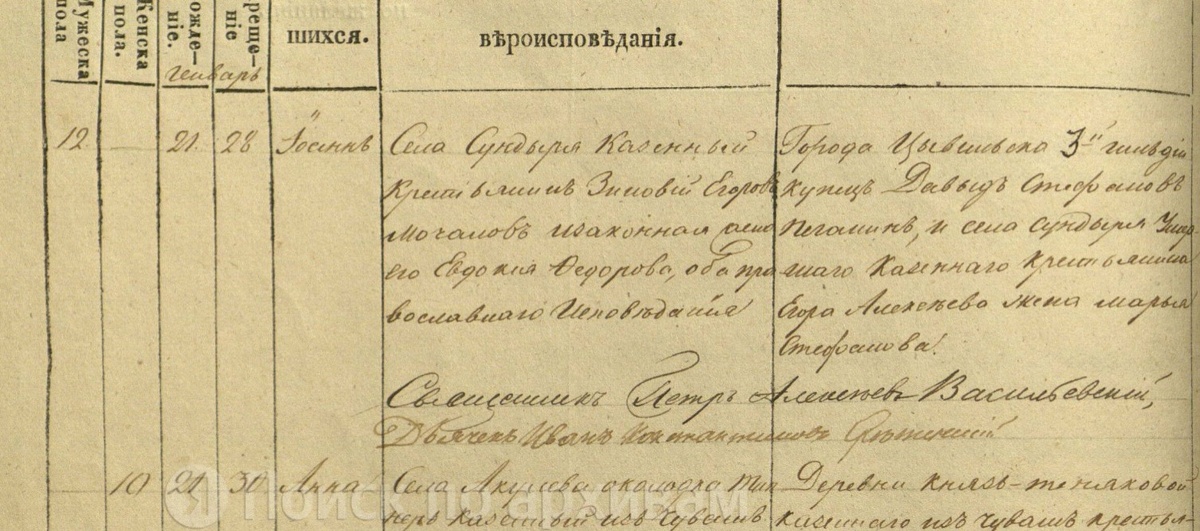 Мужеска пола
Женска пола.
ожде–ніе.
реще–ніе
шихся.
вѣроисповѣданія.
генварь
12 — 21 28 Іоаннъ
Села Сундыря Казенный
Крестьянинъ Зиновій Егоровъ
Мочаловъ изаконная жена
его Евдокия Ѳедорова, оба пра
вославнаго Исповѣданія
Города Цывильска 3й гильдіи
купецъ Давыдъ Стефановъ
Пегалинъ, и села Сундыря Умер
шаго Казеннаго Крестьянина
Егора Алексѣева жена марья
Стефанова.
Священникъ Петръ Алексѣевъ Васильевскій,
Дьячекъ Иванъ Константиновъ
— 10 21 30 Анна
Села Акулева околодка
Казенный изъ Чувашъ
Деревни Князь-теняковой
казеннаго изъ чувашъ крестья
Поиск по архивам